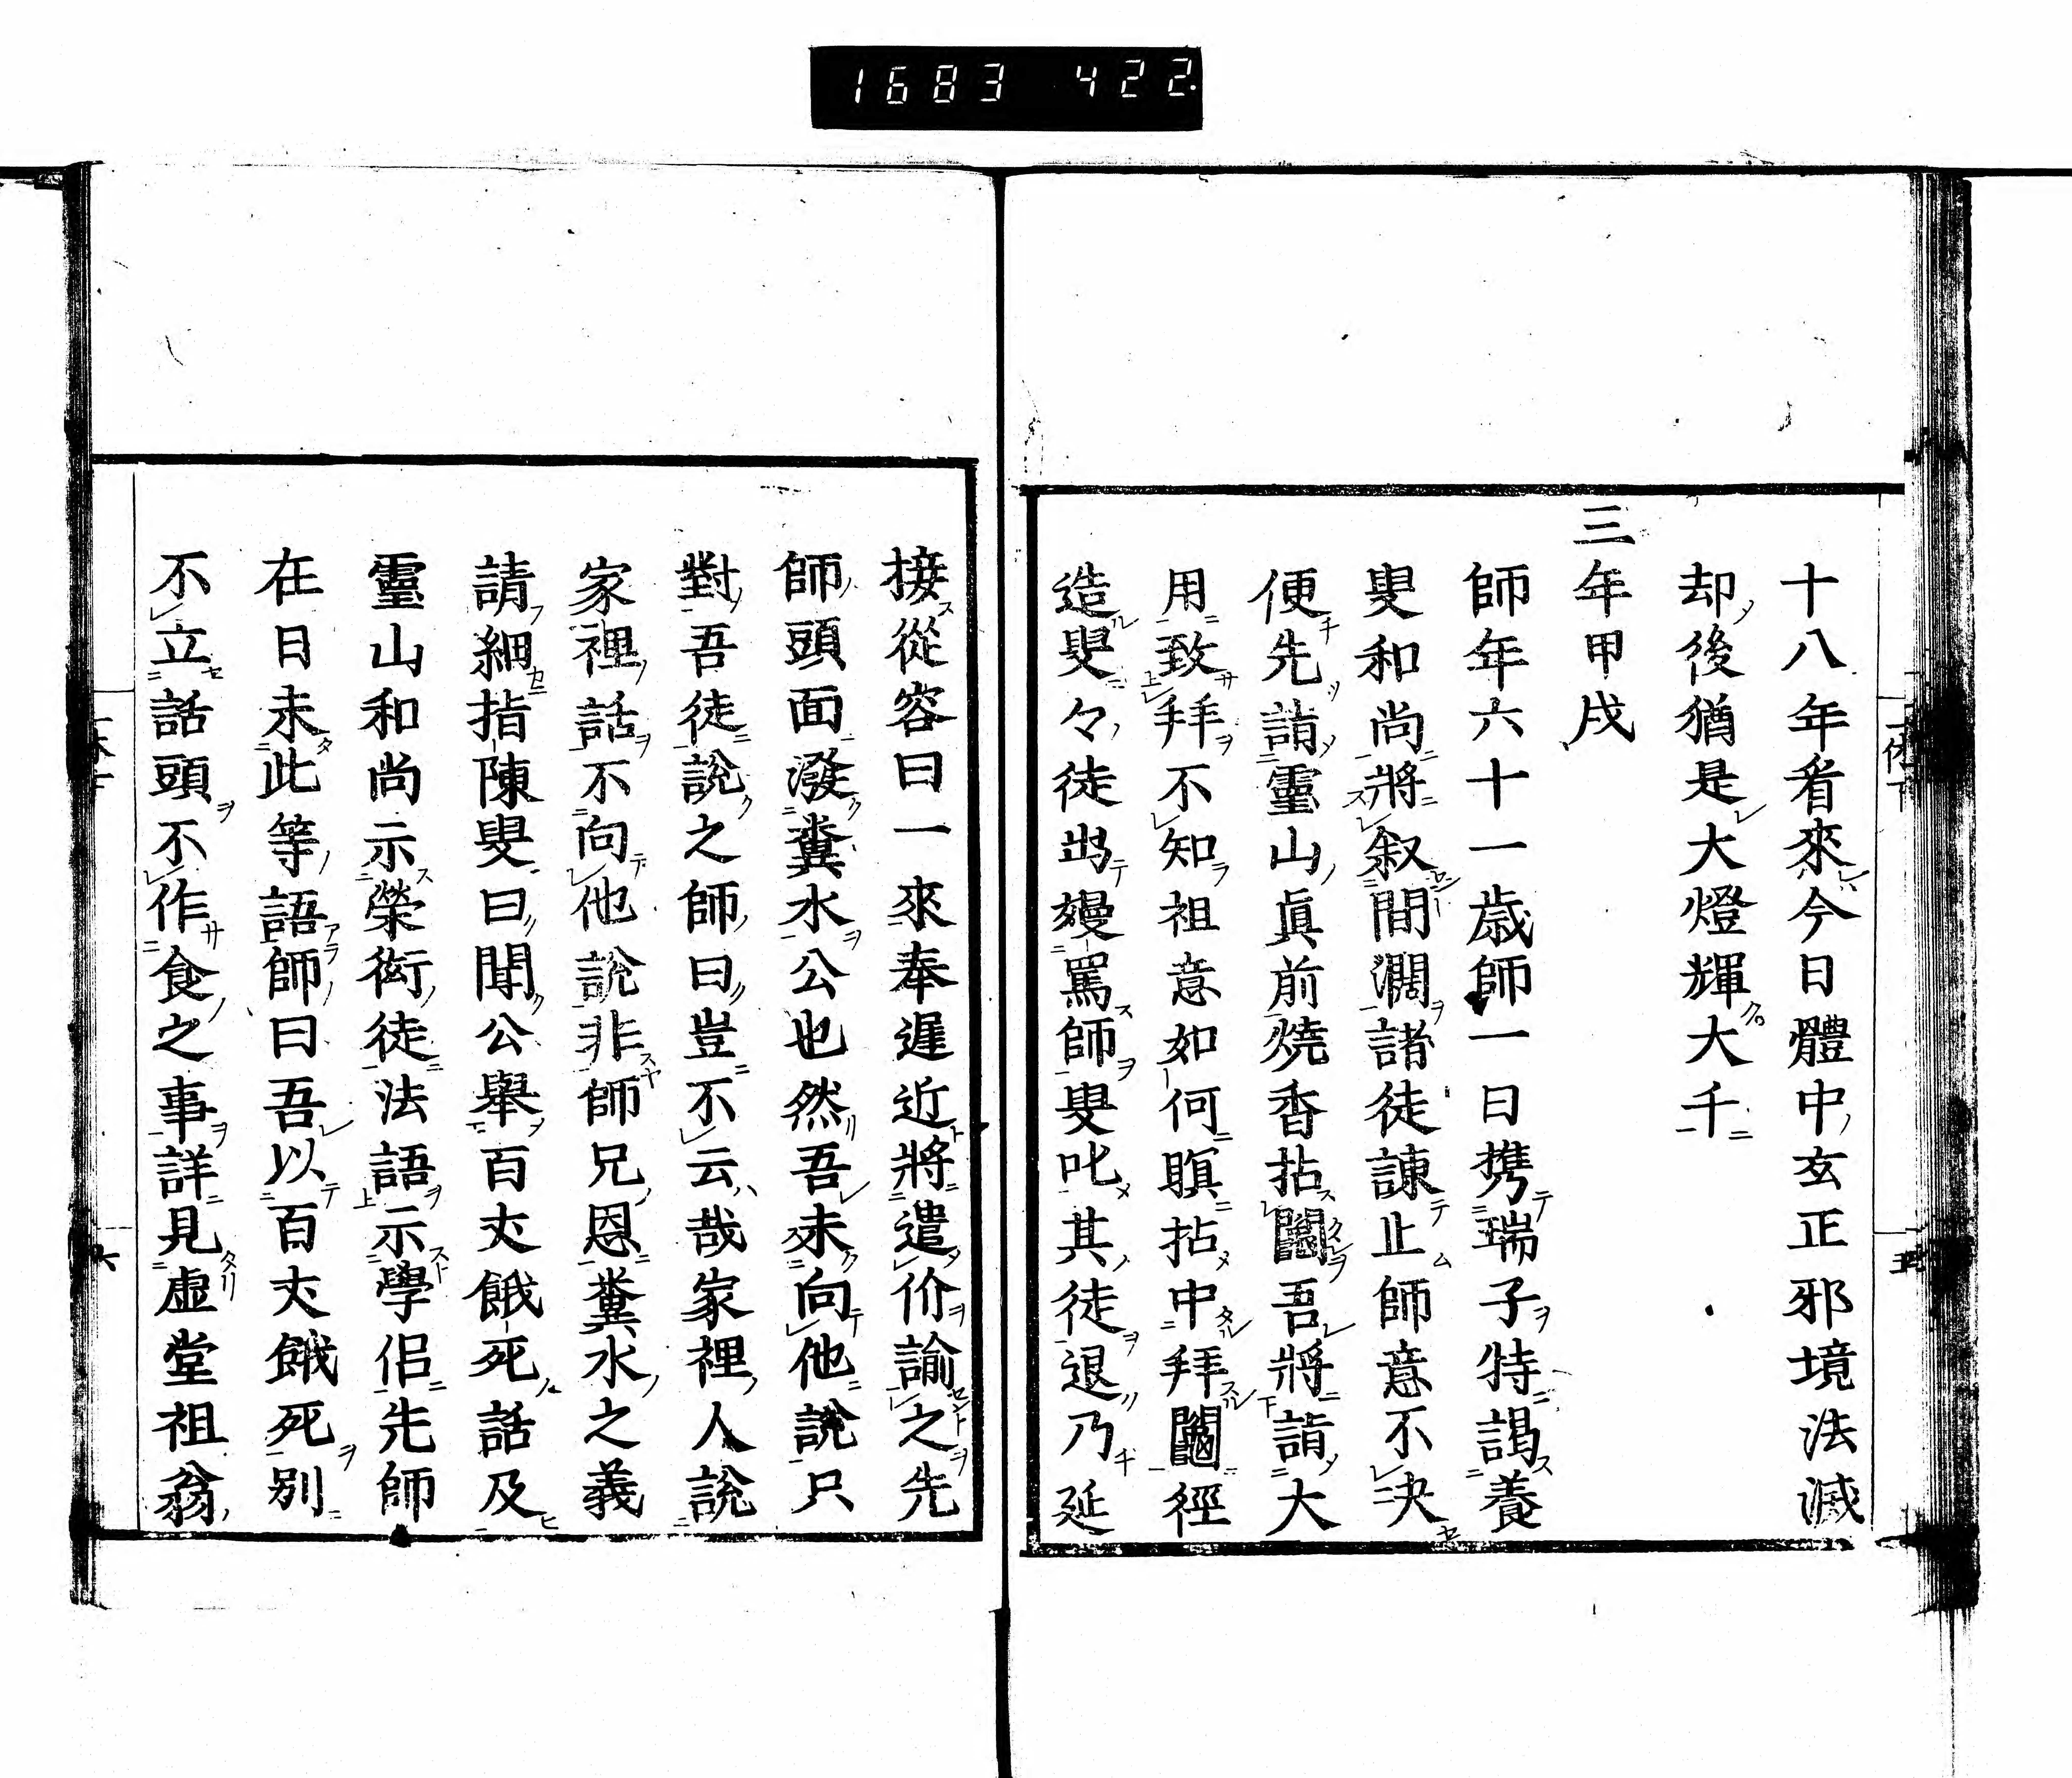 1683 422.
十八年看來今日體中玄正邪境法滅
却後猶是大燈輝大千
三年甲戌
師年六十一歳師一日携瑞子特謁養
叟和尚將叙間濶諸徒諫止師意不决
便先請靈山眞前燒香拈鬮吾將請大
用致拜不知祖意如何瞋拈中拜鬮徑
造叟々徒出嫚罵師叟叱其徒退乃延
接從容曰一來奉遲近將遣价諭之先
師頭面潑糞水公也然吾未向他說只
對吾徒說之師曰豈不云哉家裡人說
家裡話不向他說非師兄恩糞水之義
請細指陳叟曰聞公舉百丈餓死話及
靈山和尚示榮衒徒法語示學侶先師
在日未此等語師曰吾以百丈餓死別
不立話頭不作食之事詳見虛堂祖翁